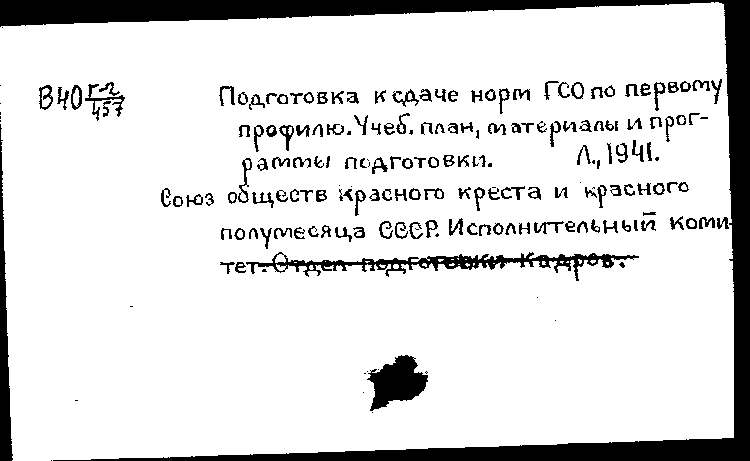 В40 Г-2/457 Подготовка к сдаче норм ГСО по первому
профилю. Учеб. план, материалы и прог-
раммы подготовки. Л., 1941.
Союз обществ красного креста и красного
полумесяца СССР. Исполнительный коми-
тет. Отдел подготовки кадров.